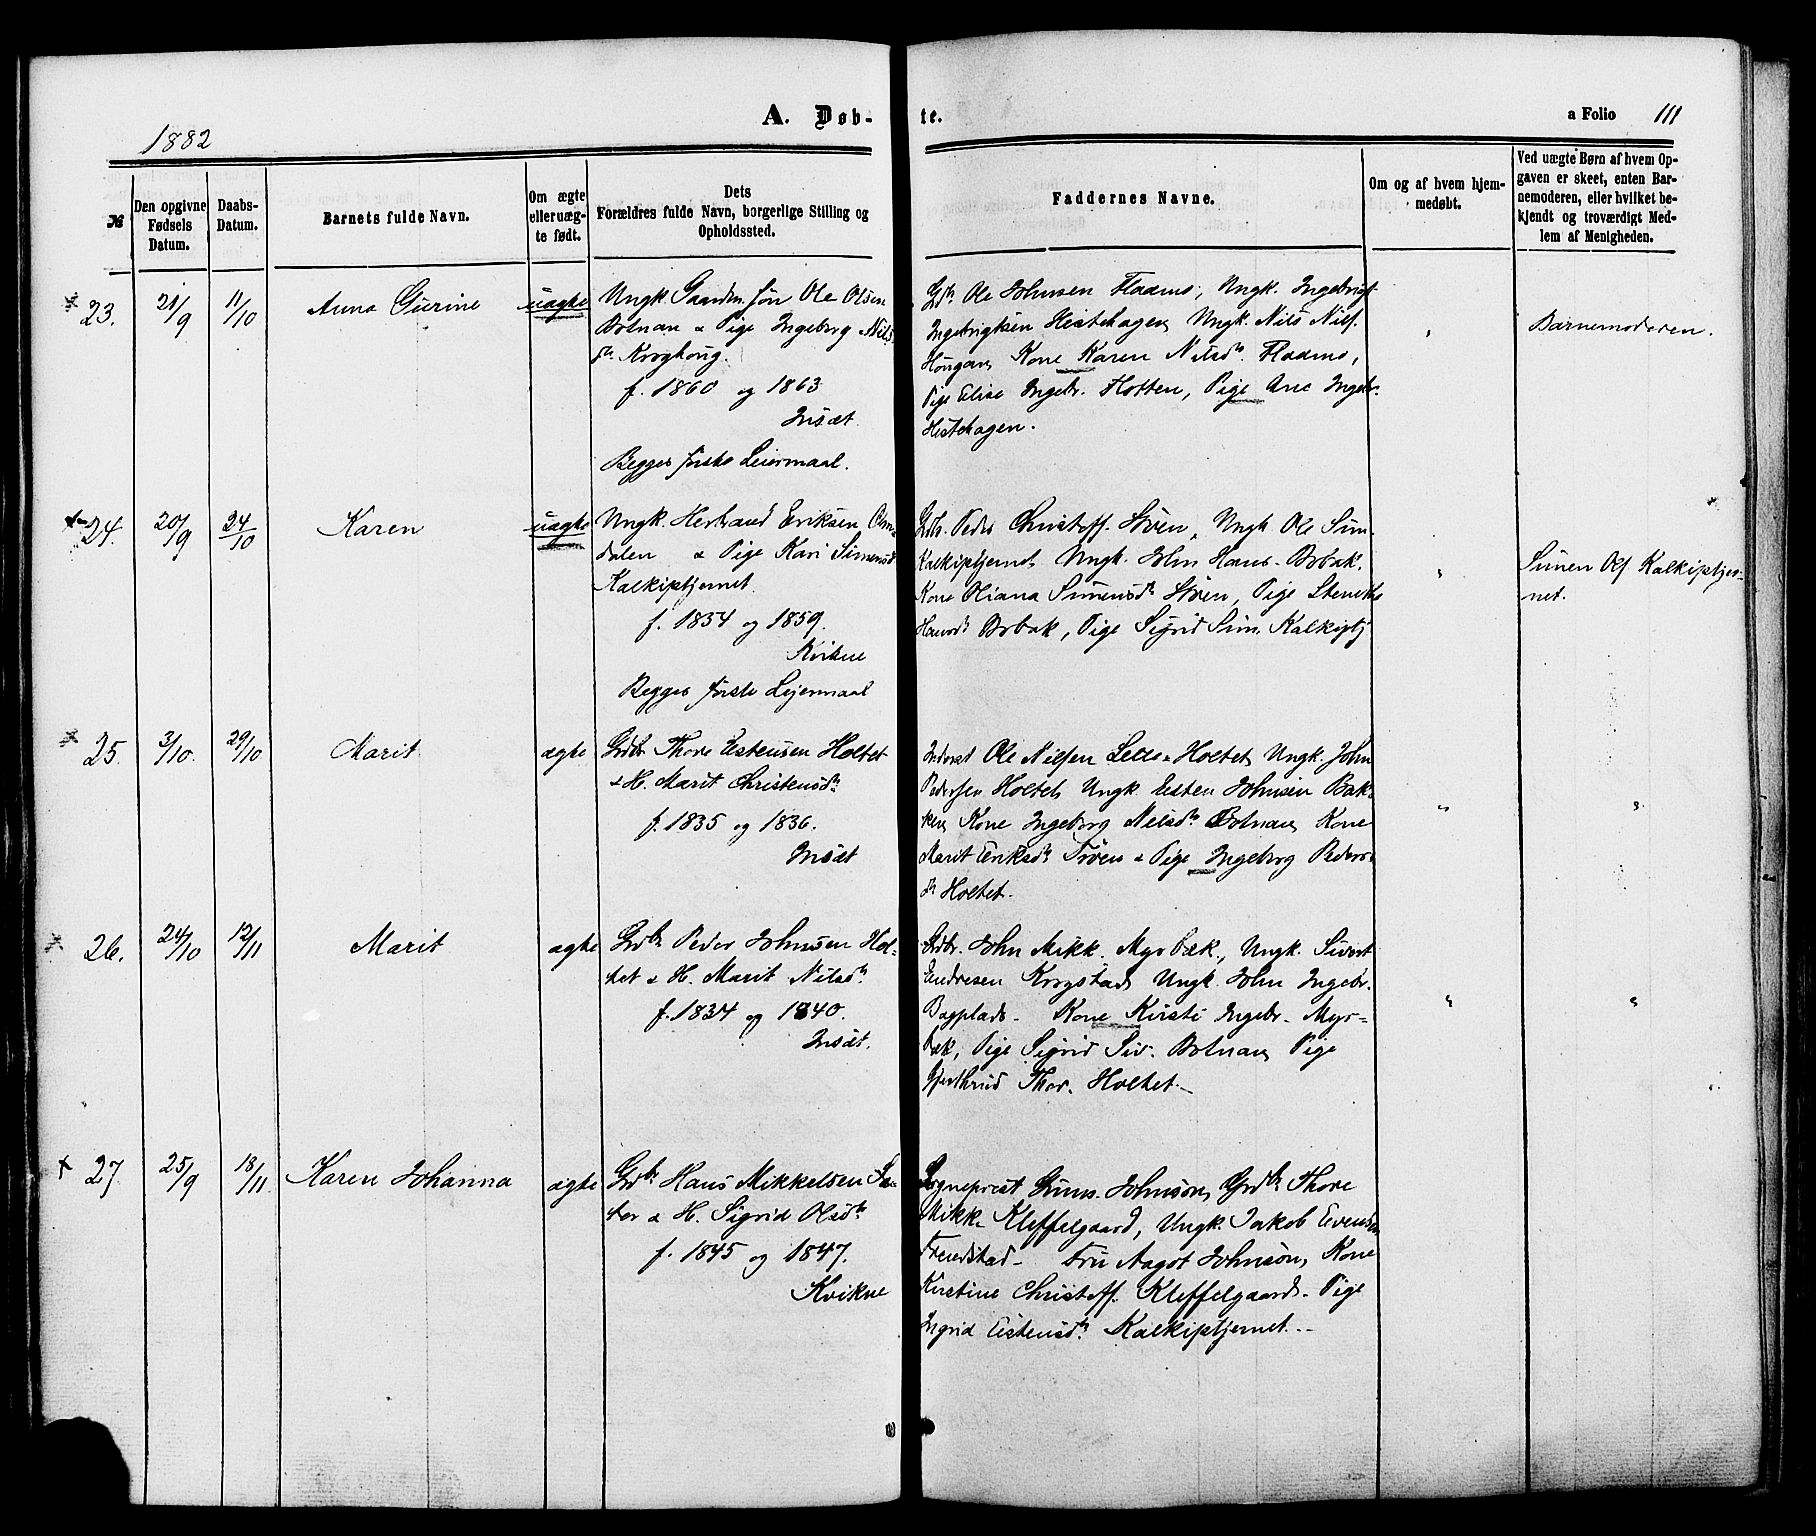 1882
A. Døb-
te.
a Folio 111
№
Den opgivne Fødsels Datum.
Daabs-Datum.
Barnets fulde Navn.
Om ægte eller uæg-te født.
Dets Forældres fulde Navn, borgerlige Stilling og Opholdssted.
Faddernes Navne.
Om og af hvem hjem-medøbt.
Ved uægte Børn af hvem Op-gaven er skeet, enten Bar-nemoderen, eller hvilket be-kjendt og troværdigt Med-lem af Menigheden.
23. 21/9 11/10 Anna Gurine uægte
Ungk. Gaardm. søn Ole Olsen
Botnan & Pige Ingeborg Nils
dtr Kroghoug.
f. 1860 og 1863
Insæt.
Begges første Leiermaal.
Gdbr Ole Johnsen Flaams, Ungk. Ingebrigt
Ingebrigtsen Hestehagen, Ungk. Nils Niels.
Hougan, Kone Karen Nilsdtr. Flaams,
Pige Elise Ingebr. Hotten, Pige Ane Ingebr.
Hestehagen.
"
Barnemoderen.
24. 20/9 24/10 Karen uægte
Ungk. Herbrand Eriksen
dalen & Pige Kari Simensd
Kalkiptjernet.
f. 1834 og 1859.
Kvikne
Begges første Lejermaal
Gdbr. Peder Christoff. Støen, Ungk Ole Sim.
Kalkiptjernet, Ungk. John Hans. Bobak.
Kone Oliana Simensdtr Støen, Pige
Hansdtr Bobak, Pige Sigrid Sim. Kalkiptj
"
Simen Ols. Kalkiptjer-
net.
25. 3/10. 29/10 Marit ægte
Gdbr Thore Estensen Holtet
& H. Marit Christensdtr
f. 1835 og 1836.
Insæt
Inderst Ole Nilsen Holtet, Ungk. John
Pedersen Holtet, Ungk. Esten Johnsen Bak-
ken, Kone Ingeborg Nilsdtr Botnan, Kone
Marit Eriksdtr Trøen & Pige Ingeborg Peders
dtr Holtet.
" "
26. 24/10 12/11 Marit ægte
Gdbr Peder Johnsen Hol-
tet & H. Marit Nilsdtr
f. 1834 og 1840.
Insæt.
Gdbr. John Mikk. Myrbæk, Ungk. Sivert
Endresen Krogstad, Ungk. John Ingebr.
Bagplads. Kone Kirsti Ingebr. Myr-
bæk, Pige Sigrid Siv. Botnan, Pige
Gjerthrud Thor. Holtet.
" "
27. 25/9 18/11. Karen Johanna ægte
Gdbr Hans Mikkelsen Sæ-
ter & H. Sigrid Olsdtr
f. 1845 og 1847.
Kvikne
Sogneprest Johnson, Gdbr Thore
Mikk. Kleffelgaard, Ungk. Jakob Evens.
Frendstad. Fru Aagot Johnson, Kone
Kirstine Christoff. Kleffelgaard. Pige
Ingrid Estensdtr Kalkiptjernet.